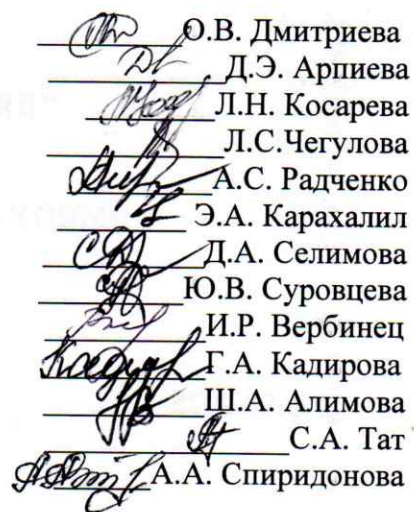 О.В. Дмитриева
Д.Э. Арпиева
Л.Н. Косарева
Л.С.Чегулова
А.С. Радченко
Э.А. Карахалил
Д.А. Селимова
Ю.В. Суровцева
И.Р. Вербинец
Г.А. Кадирова
Ш.А. Алимова
С.А. Тат
А.А. Спиридонова